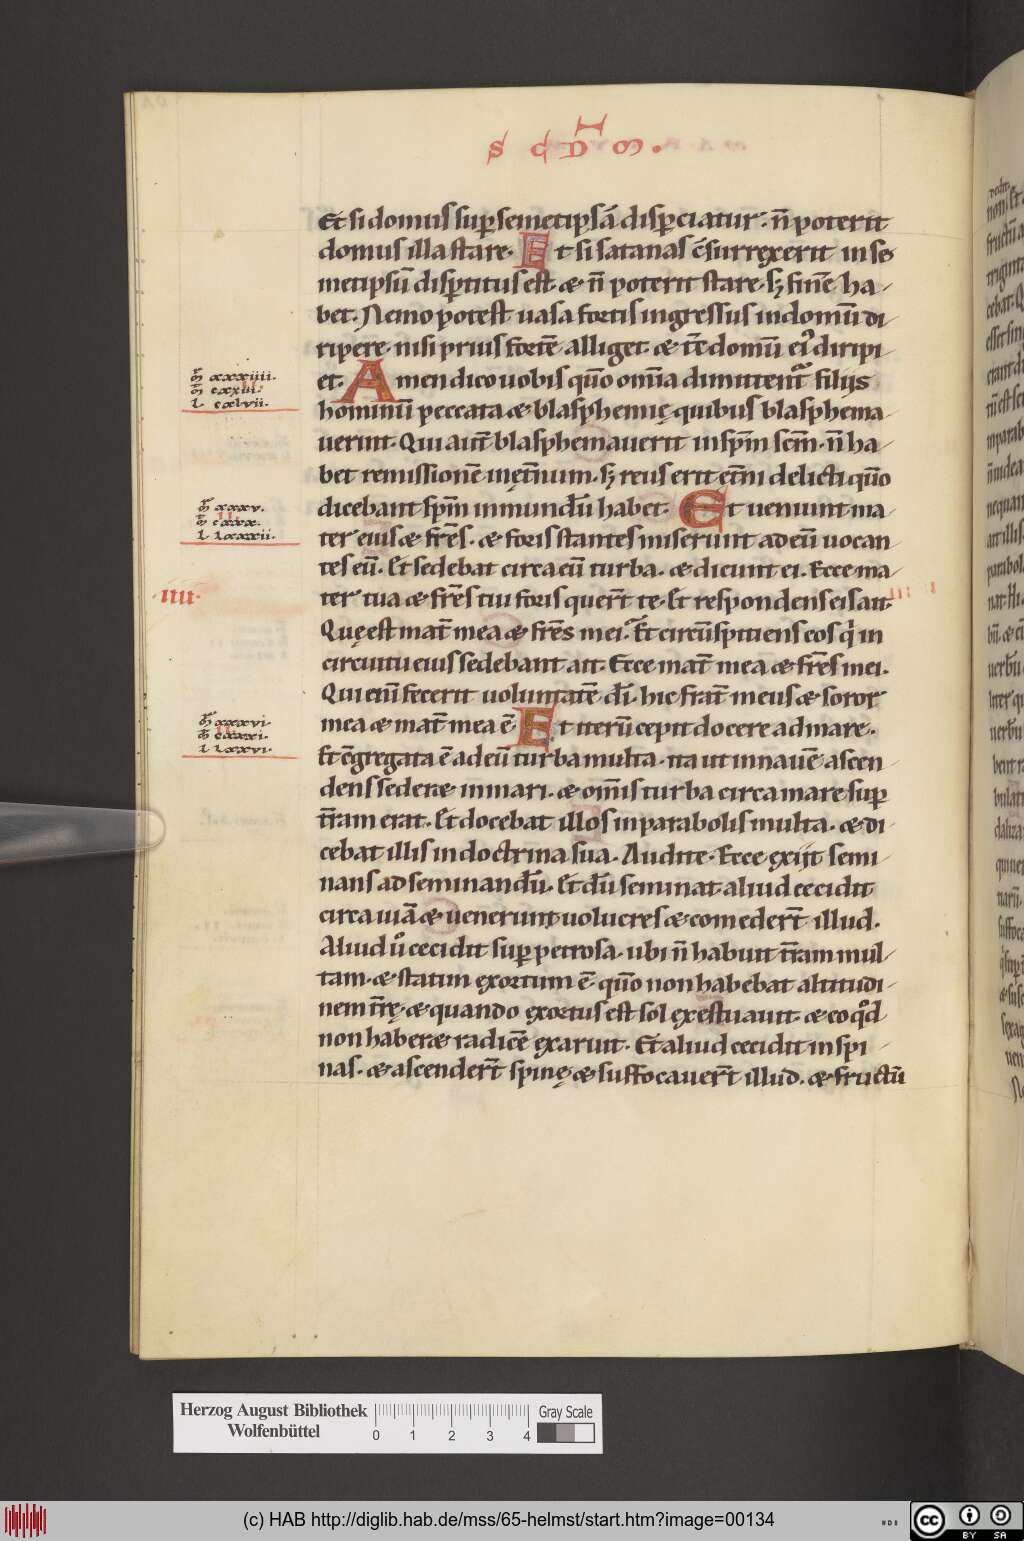 S C D M .
Et si domus sup semetipsā dispciatur. n̄ poterit
domus illa stare. Et si satanas c̄surrexerit in se
metipsū dispititus est. & n̄ poterit stare. sꝫ finē ha
bet. Nemo potest uasa fortis ingressus in domū di
ripere. nisi prius fortē alliget. & tc̄ domū ei᾽ diripi
et. Amen dico uobis qūo om̄ia dimittent᾽ filijs
hominū peccata & blasphemię quibus blasphema
uerint. Qui aut̄ blasphemauerit in spm̄ scm̄. n̄ ha
bet remissionē inęt̄num. sꝫ reus erit et̄ni delicti qūo
dicebant spm̄ inmundū habet. Et ueniunt ma
ter eius & fr̄es. & foris stantes miserunt ad eū uocan
tes eū. Et sedebat circa eū turba. & dicunt ei. Ecce ma
ter tua & fr̄es tui foris quer̄t te. Et respondens eis ait.
Quę est mat̄ mea & fr̄es mei. Et circūspitiens eos q̇ in
circuitu eius sedebant ait. Ecce mat̄ mea & fr̄es mei.
Qui enī fecerit uoluntatē dī. hic frat̄ meus & soror
mea & mat̄ mea ē. Et iterū cepit docere ad mare.
Et c̄gregata ē ad eū turba multa. ita ut in nauē ascen
dens sederæ in mari. & om̄is turba circa mare sup
t̄ram erat. Et docebat illos in parabolis multa. & di
cebat illis in doctrina sua. Audite. Ecce exijt semi
nans ad seminandū. Et dū seminat aliud cecidit
circa uiā & uenerunt uolucres & comeder̄t illud.
Aliud ů cecidit sup petrosa. ubi n̄ habuit t̄ram mul
tam. & statim exortum ē qūo non habebat altitudi
nem t̄rę. & quando exortus est sol exęstuauit. & eo qd̊
non haberæ radicē exaruit. Et aliud cecidit in spi
nas. & ascender̄t spinę & suffocauer̄t illud. & fructū
·IIII·
Herzog August Bibliothek
Wolfenbüttel
0 1 2 3 4
Gray Scale
(c) HAB http://diglib.hab.de/mss/65-helmst/start.htm?image=00134
cc BY SA